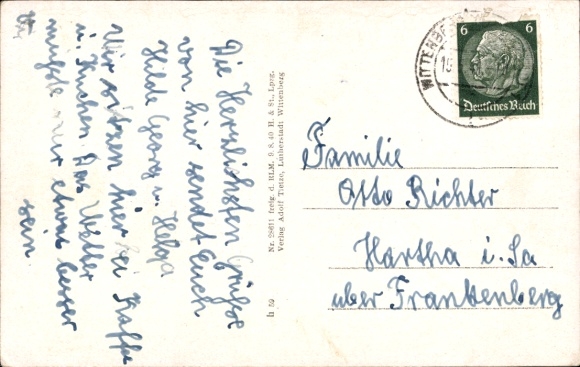 Die Herzlichsten Grüße
von hier sendet Euch
Hilde Georg u. Helga
Wir sitzen hier bei Kaffe
u. Kuchen. Das Wetter
müßte nur etwas besser
sein
Nr. 28611 freig. d. RLM. 9. 8. 40 H. & St., Lpzg.
Verlag Adolf Tietze, Lutherstadt Wittenberg
h 39
WITTENBERG
6 6
Deutsches Reich
Familie
Otto Richter
Hartha i. Sa
über Frankenberg